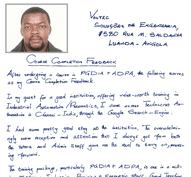 VOLTEC
SOLUÇÕES DE ENGENHARIA,
#580 RUA M. SALDANHA
LUANDA - ANGOLA
COURSE COMPLETION FEEDBACK
After undergoing a course in PGDIA & ADPA, the following serves
as my Course Completion Feedback.
In my quest for a good institution, offering value-worth training in
Industrial Automation / Robotics, I came across Technocrat Automation
in Chennai - India, through the Google Search-Engine.
I had some pretty good stay at the Institution. The
warm reception and attention that I always got from both
the tutors and Admin staff gave me the zeal to carry on,
forward.
The training package, particularly PGDIA & ADPA, is